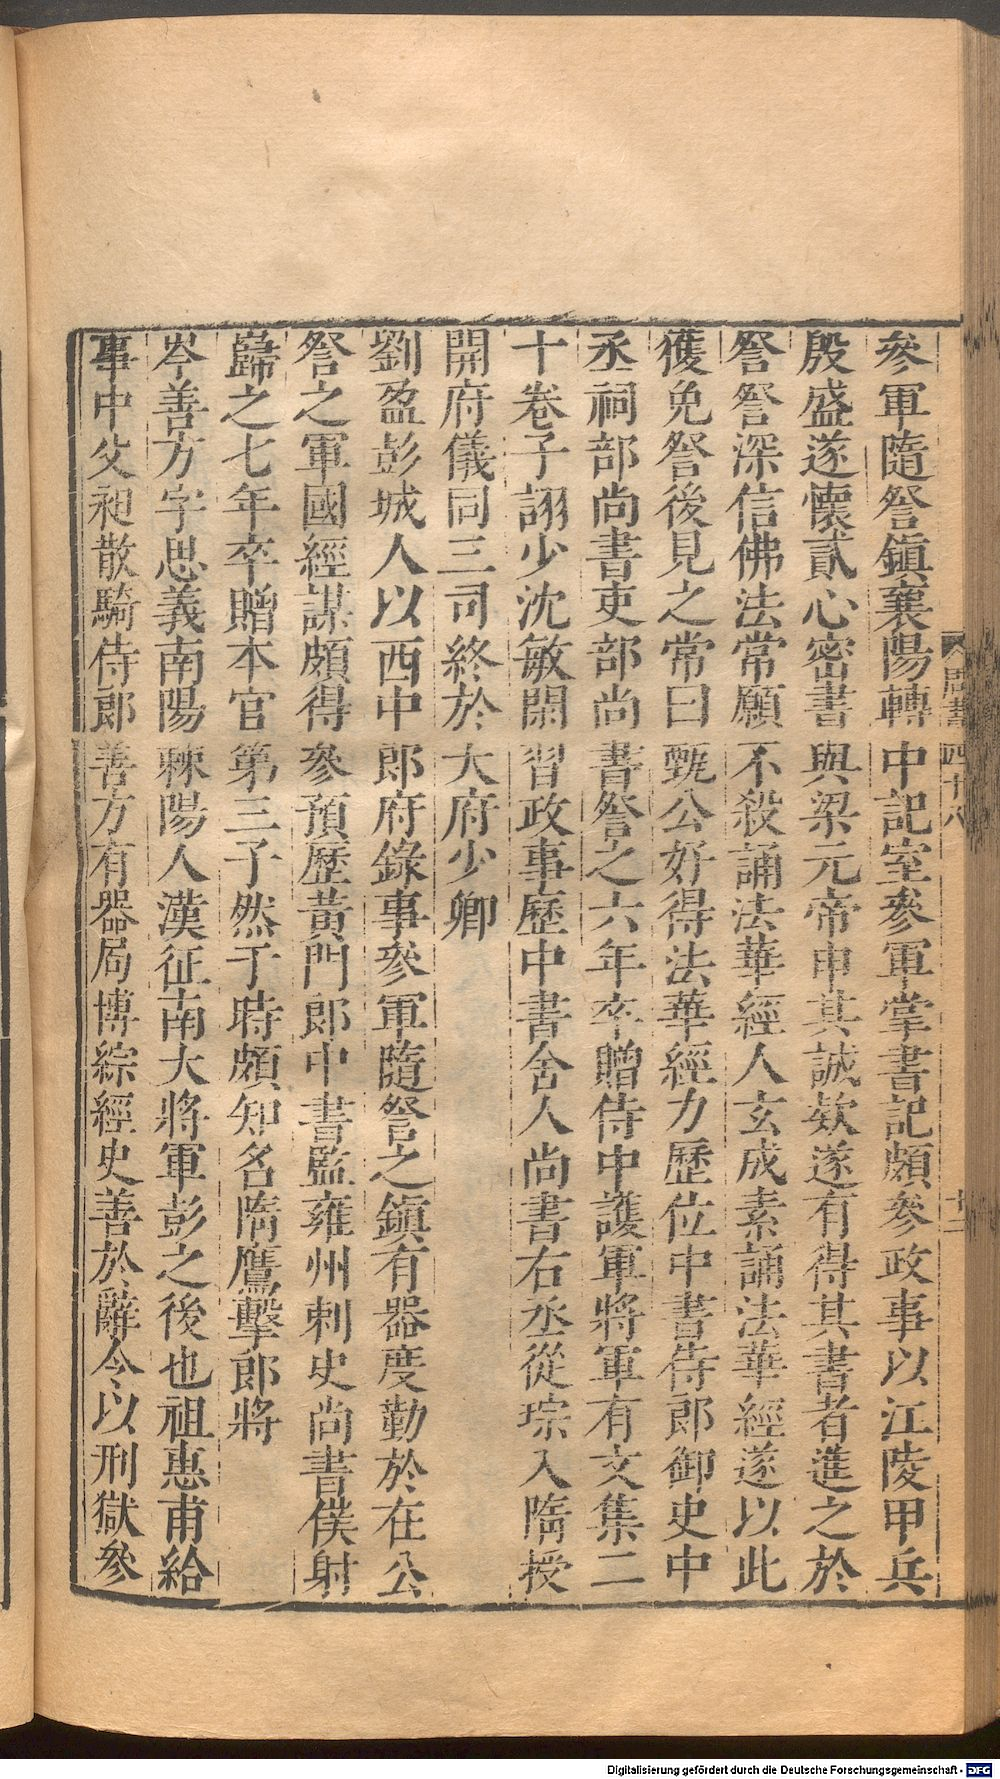 周書 四十八 十二
參軍隨詧鎮襄陽轉中記室參軍掌書記頗參政事以江陵甲兵
殷盛遂懷貳心密書與梁元帝申其誠欵遂有得其書者進之於
詧詧深信佛法常願不殺誦法華經人玄成素誦法華經遂以此
獲免詧後見之常曰甄公好得法華經力歷位中書侍郎御史中
丞祠部尚書吏部尚書詧之六年卒贈侍中護軍將軍有文集二
十卷子詡少沈敏閑習政事歷中書舍人尚書右丞從琮入隋授
開府儀同三司終於大府少卿
劉盈彭城人以西中郎府錄事參軍隨詧之鎮有器度勤於在公
詧之軍國經謀頗得參預歷黃門郎中書監雍州刺史尚書僕射
歸之七年卒贈本官第三子然于時頗知名隋鷹擊郎將
岑善方字思義南陽棘陽人漢征南大將軍彭之後也祖惠甫給
事中父昶散騎侍郎善方有器局博綜經史善於辭令以刑獄參
Digitalisierung gefördert durch die Deutsche Forschungsgemeinschaft - DFG